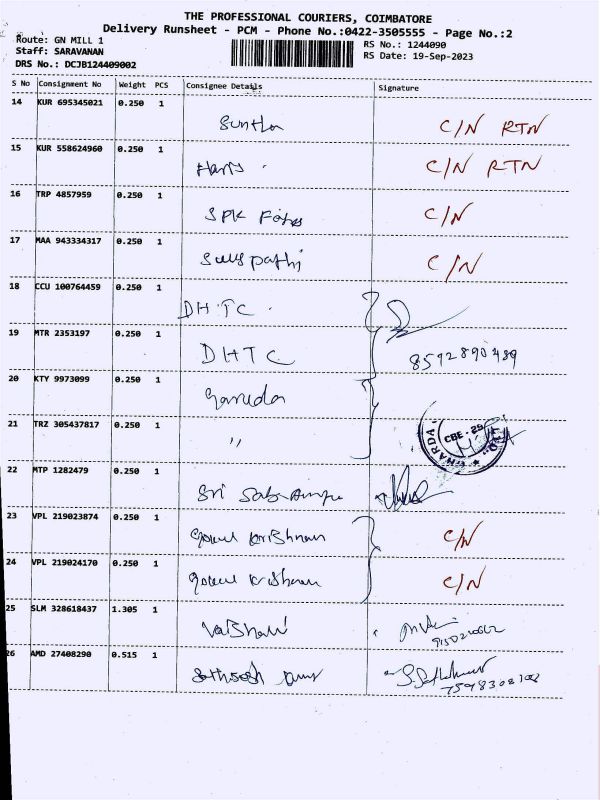 THE PROFESSIONAL COURIERS, COIMBATORE
Delivery Runsheet - PCM - Phone No.:0422-3505555 - Page No.:2
Route: GN MILL 1
RS No.: 1244090
Staff: SARAVANAN
RS Date: 19-Sep-2023
DRS No.: DCJB124409002
S No Consignment No Weight PCS Consignee Details Signature
14 KUR 695345021 0.250 1
C/N RTN
15 KUR 558624960 0.250 1
C/N RTN
16 TRP 4857959 0.250 1
SPK C/N
17 MAA 943334317 0.250 1
C/N
18 CCU 100764459 0.250 1
DHTC
19 MTR 2353197 0.250 1
DHTC 8592890489
20 KTY 9973099 0.250 1
21 TRZ 305437817 0.250 1
" CBE-29
22 MTP 1282479 0.250 1
Sri
23 VPL 219023874 0.250 1
Gokul Krishnan C/N
24 VPL 219024170 0.250 1
Gokul Krishnan C/N
25 SLM 328618437 1.305 1
Vaishnavi
26 AMD 27408290 0.515 1